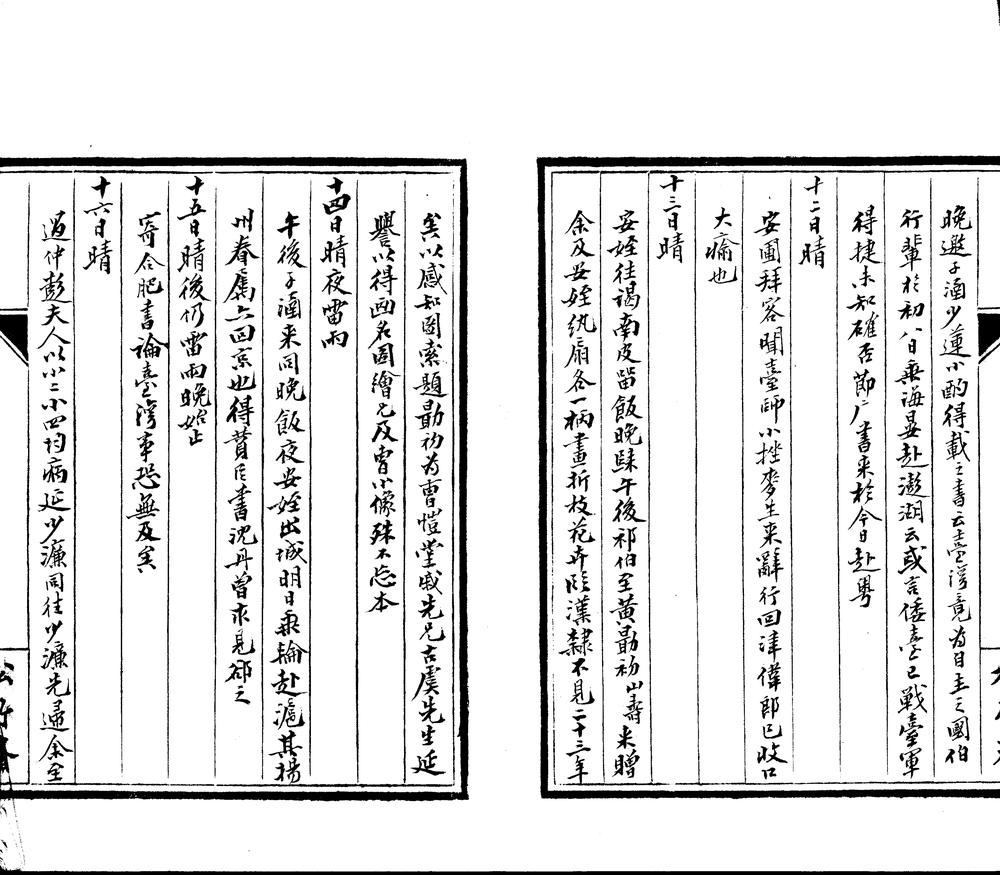 晚邀子涵少蓮小酌得載之書云臺灣竟為自主之國伯
行輩於初八日乘海晏赴澎湖云或言倭臺已戰臺軍
得捷未知確否節广書来於今日赴粤
十二日晴
安圃拜客聞臺師小挫麥生来辭行回津偉郎已收口
大瘉也
十三日晴
安姪往謁南皮留飯晚歸午後祁伯至黃勗初山壽来贈
余及安姪紈扇各一柄畫折枝花卉臨漢隸不見二十三年
矣以感知圖索題勗初為曹愷堂戚先兄古虞先生延
譽以得画名圖繪兄及曹小像殊不忘本
十四日晴夜雷雨
午後子涵来同晚飯夜安姪出城明日乘輪赴滬其揚
州眷屬亦回京也得蕡臣書沈丹曾求見卻之
十五日晴後仍雷雨晚始止
寄合肥書論臺灣事恐無及矣
十六日晴
過仲彭夫人以小二小四均病延少濂同往少濂先歸余至